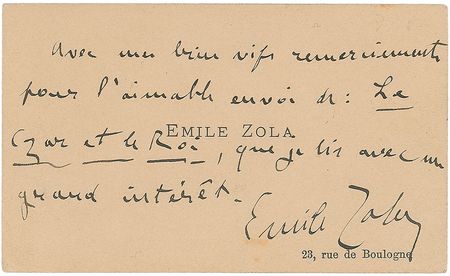 Avec mes bien vifs remerciements
pour l'aimable envoi de : Le
EMILE ZOLA
Czar et le Roi, que je lis avec un
grand intérêt.
Emile Zola
23, rue de Boulogne